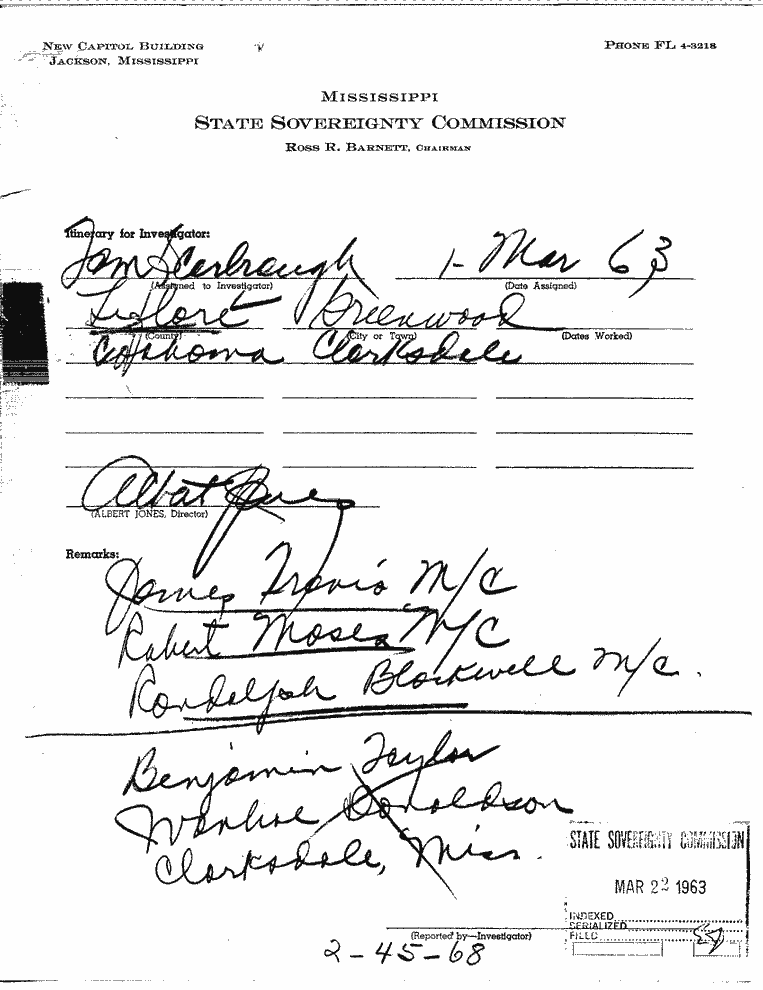 NEW CAPITOL BUILDING
JACKSON, MISSISSIPPI
PHONE FL 4-3218
MISSISSIPPI
STATE SOVEREIGNTY COMMISSION
ROSS R. BARNETT, CHAIRMAN
Itinerary for Investigator:
Tom Scarbrough 1- Mar 63
(Assigned to Investigator) (Date Assigned)
Leflore Greenwood
(County) (City or Town) (Dates Worked)
Coahoma Clarksdale
Albert Jones
(ALBERT JONES, Director)
Remarks:
James Travis M/C
Robert Moses M/C
Randolph Blackwell M/C.
Benjamin Taylor
Ivanhoe Donaldson
Clarksdale, Miss.
STATE SOVEREIGNTY COMMISSION
MAR 22 1963
INDEXED
SERIALIZED
FILED
(Reported by—Investigator)
2-45-68